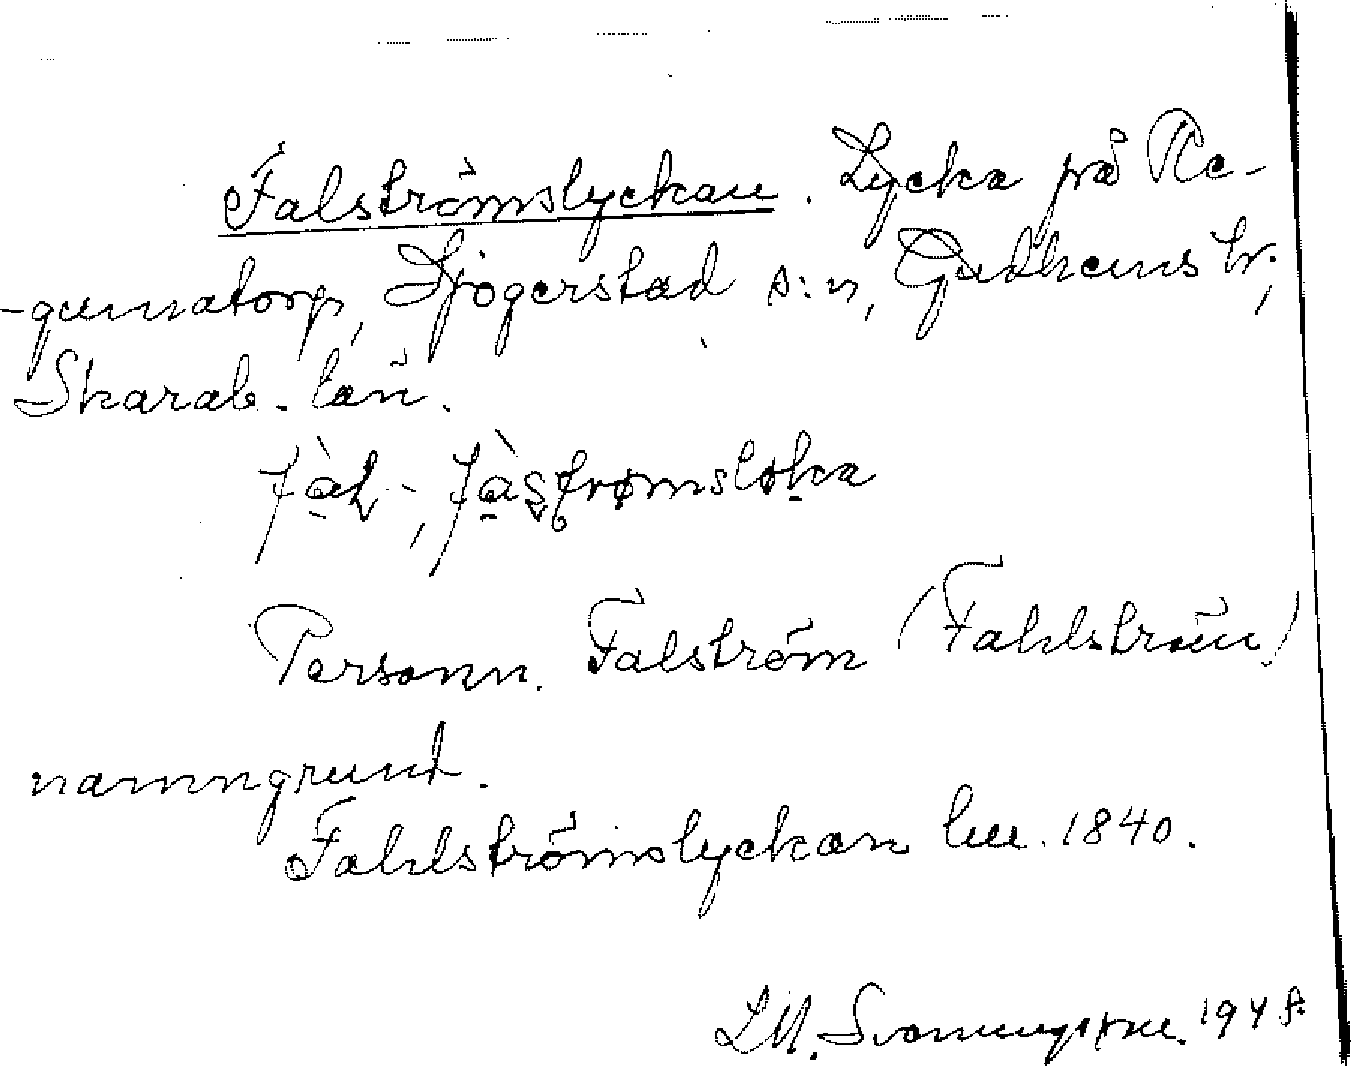 Falströmslyckan. Lycka på Ra-
-gunnatorp, Sjogerstad s:n, Gudhems hr.,
Skarab. län.
fàɫ-, fàʂtrømsløka
Personn. Falström (Fahlström)
namngrund.
Fahlströmslyckan lm. 1840.
L.M. Svanungsson. 1948